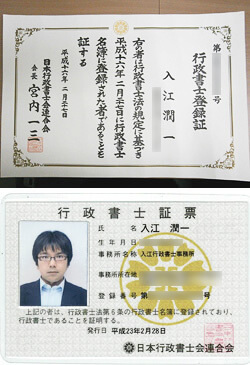 行政書士登録証
第 号
入江潤一
有の者は行政書士法の規定に基づき
平成十六年二月二十七日に行政書士
名簿に登録された者であることを
証する
平成十六年二月二十七日
日本行政書士会連合会
会長 宮内一三
行政書士証票
氏名 入江 潤一
生年月日
事務所名称 入江行政書士事務所
事務所所在地
登録番号 第 号
上記の者は、行政書士法第6条の行政書士名簿に登録されており、
行政書士であることを証明する。
発行日 平成23年2月28日
日本行政書士会連合会